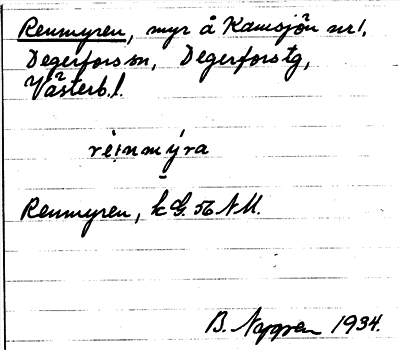 Renmyren, myr å Ramsjön nr 1,
Degerfors sn, Degerfors tg,
Västerb. l.
rèi̯nmýra
Renmyren, k G. 56 N M.
B. Nygren 1934.